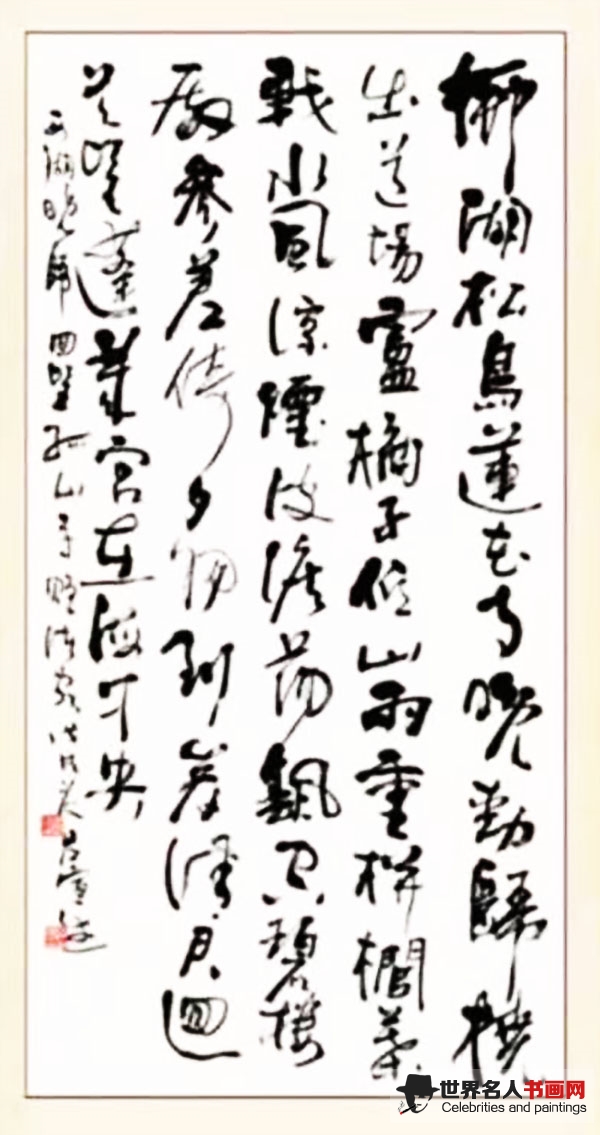 柳湖松島蓮花寺晚動歸橈
出道場盧橘子低山雨重栟櫚葉
戰水風涼煙波澹蕩空碧樓
殿參差倚夕陽到岸請君回
首望蓬萊宮在海中央
西湖晚歸回望孤山寺贈諸客
世界名人书画网
Celebrities and paintings